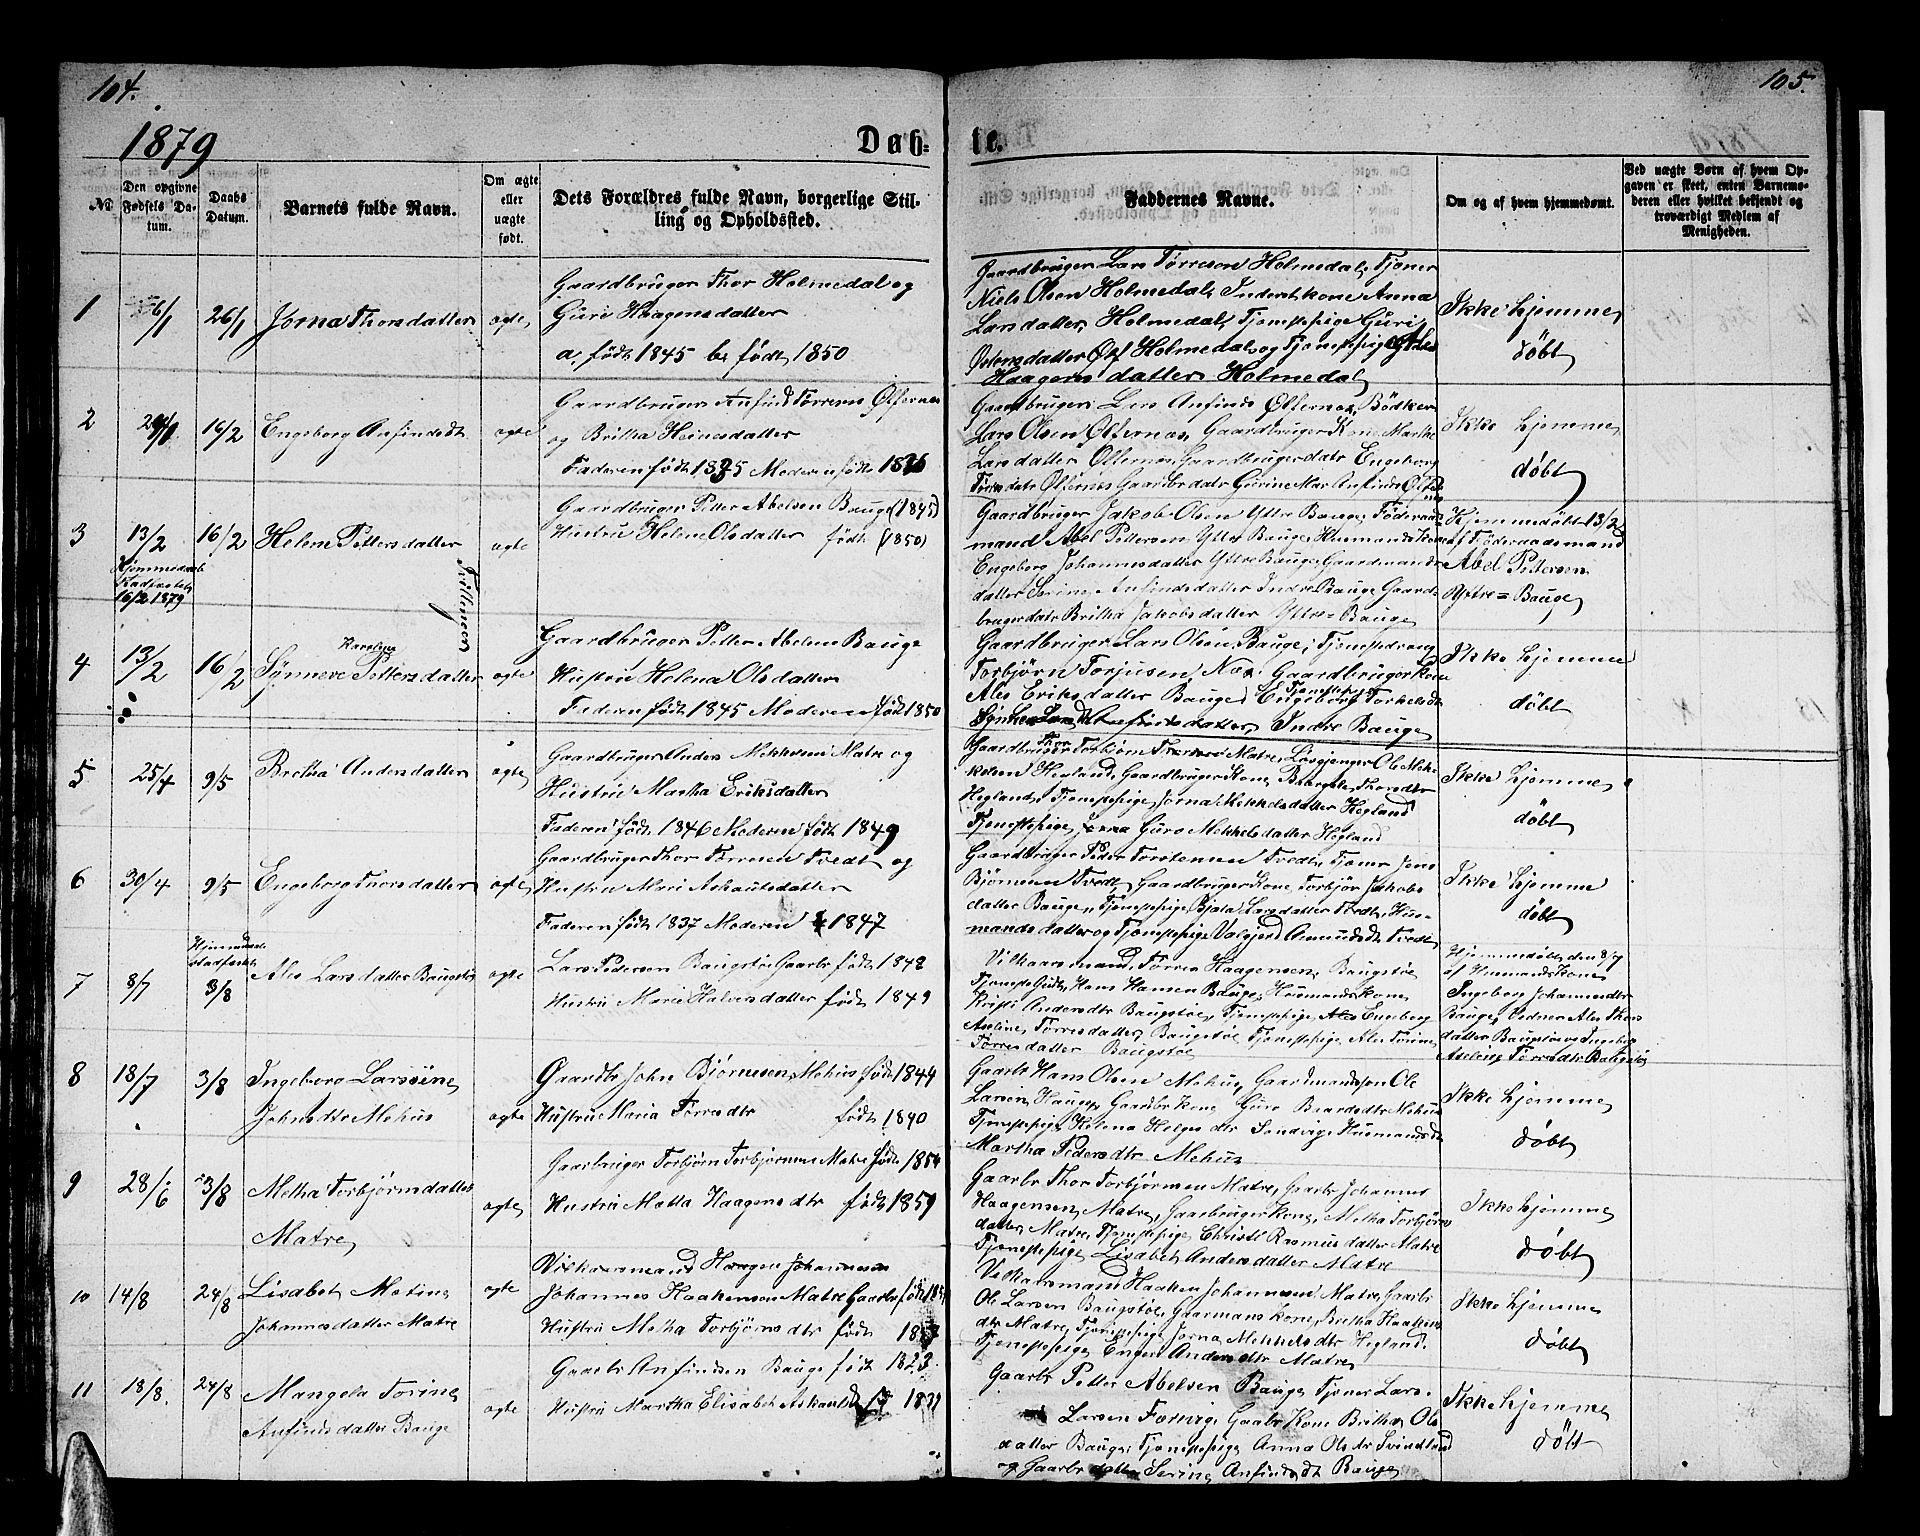 104.
105.
1879
Døb-
te.
№
Den opgivne Fødsels Datum.
Daabs Datum.
Barnets fulde Navn.
Om ægte eller uægte født.
Dets Forældres fulde Navn, borgerlige Stilling og Opholdssted.
Faddernes Navne.
Om og af hvem hjemmedømt.
Ved uægte Børn af hvem Opgaven er skeet, enten Barnemoderen eller hvilket bekjendt og troværdigt Medlem af Menigheden.
1
6/1
26/1
Jorna Thorsdatter
ægte
Gaardbruger Thor Holmedal og
Guri Haagensdatter
a, født 1845 b, født 1850
Gaardbruger Lars Tørreson Holmedal, Tjener
Niels Olsen Holmedal, Inderst kone Anna
Larsdatter Holmedal, Tjenestepige Guri
Ostensdatter Holmedal og Tjenestepige
Haagensdatter Holmedal
Ikke hjemme
døbt
2
16/2
Engeborg Anfindsdt
ægte
Gaardbruger Anfind Tørresen Ølfernes
og Britha Heinesdatter
Faderen født Moderen født
Gaardbruger Lars Anfinds Ølfernes, Bödker
Lars Olsen Ølfernes, Gaardbruger Kone Marthe
Larsdatter Ølfernes, Gaardbrugerdatr Engeborg
Ølfernes Gaardbrdatr Gurine Mar Anfinds
Ikke hjemme
døbt
3
13/2
16/2
Hjemmedaab
Stadfæstet
16/2 1879
Helene Pettersdatter
Tvillinger
ægte
Gaardbruger Petter Abelsen Bauge (1845)
Hustru Helene Olsdatter født (1850)
Gaardbruger Jakob Olsen Ytre Bauge, Føderaads
mand Abel Pettersen Ytre Bauge, Husmands Kone
Engeborg Johannesdatter Ytre Bauge, Gaardmands
datter Serine Anfindsdatter Indre Bauge Gaard-
brugerdatr Britha Jakobsdatter Ytre Bauge
Hjemmedøbt 13/2
af Føderaadsmand
Abel Petersen
Ystre = Bauge
4
13/2
16/2
Karoline
Synneve Pettersdatter
ægte
Gaardbruger Petter Abelsen Bauge
Hustru Helena Olsdatter
Faderen født 1845 Moderen født 1850
Gaardbruger Lars Olsen Bauge, Tjenestedreng
Torbjørn Torjusen Næs, Gaardbruger Kone
Ales Eriksdatter Bauge, Engeborg Torkelsdt
Anfindsdatter Indre Bauge
Ikke hjemme
døbt
5
25/4
9/5
Bretha Andersdatter
ægte
Gaardbruger Anders Mekkelsen Matre og
Hustru Martha Eriksdatter
Faderen født 1846 Moderen født 1849
Gaardbruger Torbjørn Matre, Løsgjenger Ole Mek-
kelsen Hegland, Gaardbruger Kone, Thorsdtr
Hegland, Tjenestepige Jorna Mekkelsdatter Hegland
Tjenestepige Guro Mekkelsdatter Hegland
Ikke hjemme
døbt
6
30/4
9/5
Engeborg Thorsdatter
ægte
Gaardbruger Thor Tørresen Tvedt og
Hustru Mari Askautsdatter
Faderen født 1837 Moderen f 1847
Gaardbruger Peder Torstensen Tvedt, Tjener Jens
Bjørnsen Tvedt, Gaardbruger Kone, Torbjør Jakobs
datter Bauge, Tjenestepige Larsdatter Tvedt, Hus-
mandsdatter og Tjenestepige Valgjerd Amundsdt Tvedt
Ikke hjemme
døbt
7
8/7
Hjemmedaab
stadfæstet
3/8
Ales Larsdatter Baugstø
ægte
Lars Pedersen Baugstøe Gaarbr født 1842
Hustru Marie Halvorsdatter født 1849
Vilkaarsmand, Tørres Haagensen, Baugstøe
Tjeneste Gut, Hans Hansen Bauge, Husmands Kone
Kristi Andersdtr Baugstøe, Tjenestepige Ales Engeborg
Aseline Tørresdatter, Baugstøe, Tjenestepige Ales Torine
Tørresdatter Baugstøe
Hjemmedøbt, den 8/7
af Husmands Kone
Ingeborg Johannesdtr
Bauge, Vidner Ales Thors
datter Baugstøe og Ingeborg
Aseline Tørresdtr Baugstøe
8
18/7
3/8
Ingeborg Larssine
Johnsdtr Mehus
ægte
Gaardbr John Bjørnsen Mehus født 1844
Hustru Maria Tørresdtr født 1840
Gaarbr Hans Olsen Mehus, Gaardmandssøn Ole
Larsen, Hauge, Gaardbr Kone Guro Baardsdtr Mehus
Tjenestepige Helena Helgesdtr Sandvig, Husmandsdt
Martha Pedersdtr Mehus
Ikke hjemme
døbt
9
28/6
3/8
Metha Torbjörnsdatter
Matre
ægte
Gaarbruger Torbjørn Torbjörnsen Matre født 1854
Hustru Matta Haagensdtr født 1859
Gaarbr Thor Torbjörnsen Matre, Gaarbr Johannes
Haagensen, Matre, Gaarbruger Kone, Metha Torbjörns
datter, Matre, Tjenestepige Christi Rasmusdatter Matre
Tjenestepige Lisabet Andersdatter Matre
Ikke hjemme
døbt
10
14/8
24/8
Lisabet Matine
Johannesdatter Matre
ægte
Vilkaarsmand Haagen Johannesen
Johannes Haakensen Matre Gaarbr født
Hustru Metha Torbjørnsdtr født
Vilkaarsmand Haaken Johannesen Matre, Gaarbr
Ole Larsen Baugstøe, Gaarmans Kone, Britha Haakens
dtr Matre, Tjenestepige Jorna Mekkelsdtr Hegland.
Tjenestepige Andersdtr Matre
Ikke hjemme
døbt
11
18/8.
24/8
Mangela Torine
Anfindsdatter Bauge
ægte
Gaarbr Anfindsen Bauge født 1823
Hustru Martha Elisabet Askautsd
Gaarbr Petter Abelsen Bauge, Tjener Lars.
Larsen Førvig, Gaarbr Kone Britha Ols
datter Bauge, Tjenestepige Anna Olsdtr Svindland
og Gaarbr datter Serine Anfindsdt Bauge
Ikke hjemme
døbt